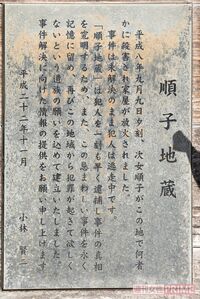 順子地蔵
平成八年九月九日夕刻、次女順子がこの地で何者
かに殺害され家屋が放火されました。
事件は未解決のまま犯人は逃走中です。
「順子地蔵」は犯人を一刻も早く逮捕し事件の真相
を究明するため、またこの忌まわしい事件を永く
記憶に留め、再びこの地域から犯罪が起きて欲しく
ないという遺族の願いを込めて建立いたしました。
事件解決に向けた情報の提供をお願い申し上げます。
平成二十二年十一月
小林 賢二
週刊女性PRIME